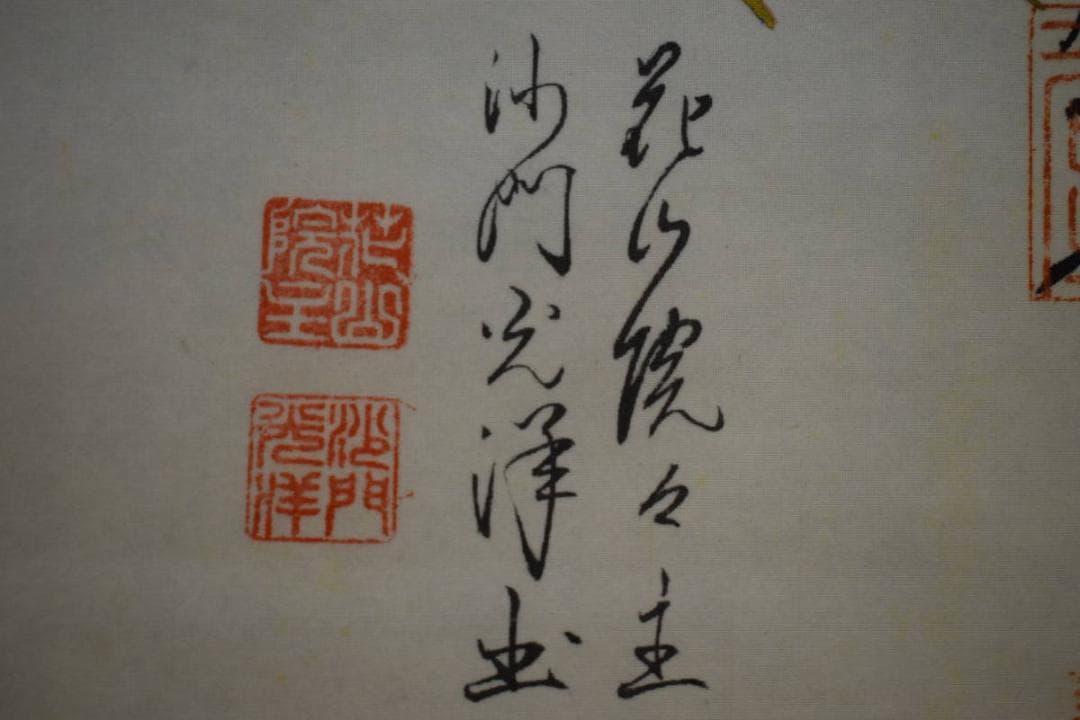 花山院々主
沙門光洋書
花山
院主
沙門
光洋